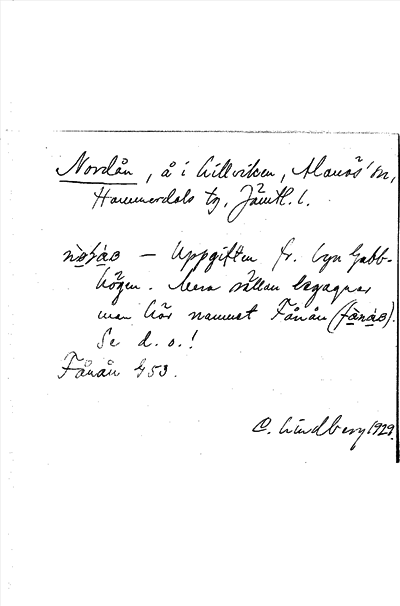 Nordån, å i Lillviken, Alanäs' sn,
Hammerdals tg, Jämtl. l.
— Uppgiften fr. byn Gubb-
högen. Mera sällan begagnar
man här namnet Fånån
Se d. o.!
Fånån G53.
C. Lindberg 1929.